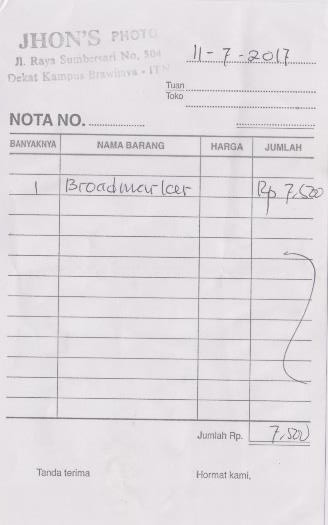 JHON'S PHOTO
Jl. Raya Sumbersari No. 504
Dekat Kampus Brawijaya - ITN
11-7-2017
Tuan
Toko
NOTA NO.
BANYAKNYA NAMA BARANG HARGA JUMLAH
1 Broadmarker Rp 7,500
Jumlah Rp. 7,500
Tanda terima Hormat kami,